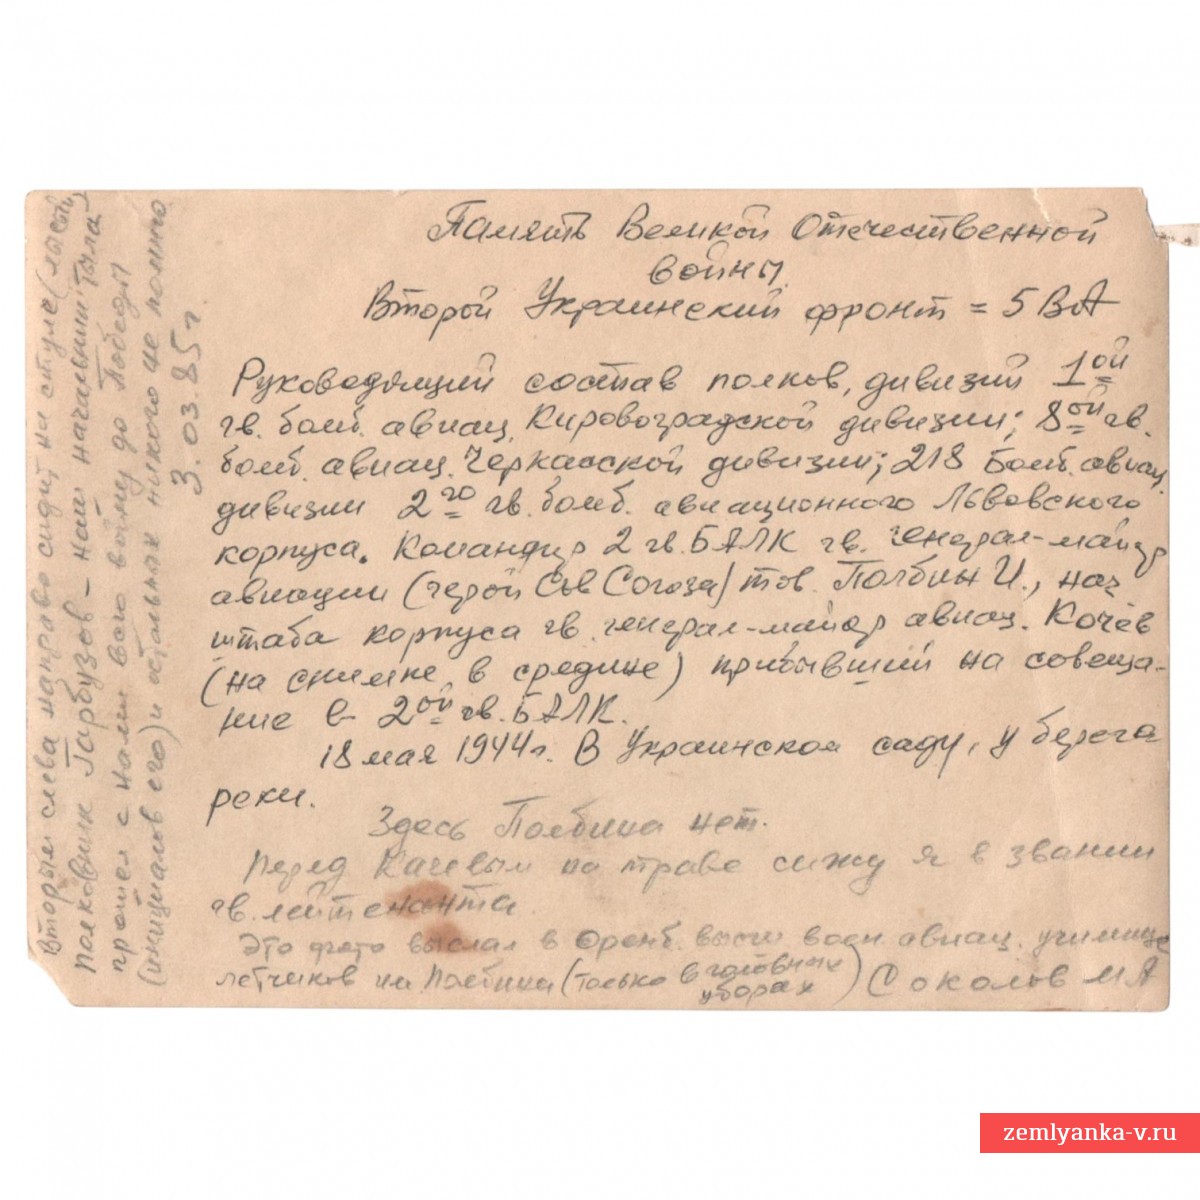 Память Великой Отечественной
войны.
Второй Украинский фронт = 5 ВА
Руководящий состав полков, дивизий 1ой
гв. бомб. авиац. Кировоградской дивизии; 8ой гв.
бомб. авиац. Черкасской дивизии; 218 бомб. авиац.
дивизии 2го гв. бомб. авиационного Львовского
корпуса. Командир 2 гв. БАЛК гв. генерал-майор
авиации (герой Сов Союза) тов. Полбин И., нач
штаба корпуса гв. генерал-майор авиац. Кочев
(на снимке в средине) прибывший на совеща-
ние в 2ой гв. БАЛК.
18 мая 1944г. В Украинском саду, у берега
реки.
Здесь Полбина нет.
Перед Качевым на траве сижу я в звании
гв. лейтенанта.
Это фото выслал в Оренб. высш воен. авиац. училище
летчиков им. Полбина (только в головных
уборах) Соколов М А
Вторым слева направо сидит на стуле (лысый)
полковник Гарбузов – наш начальник тыла
прошел с нами всю войну до Победы
(инициалов его) и остальных никого не помню.
3.03.85 г.
zemlyanka-v.ru